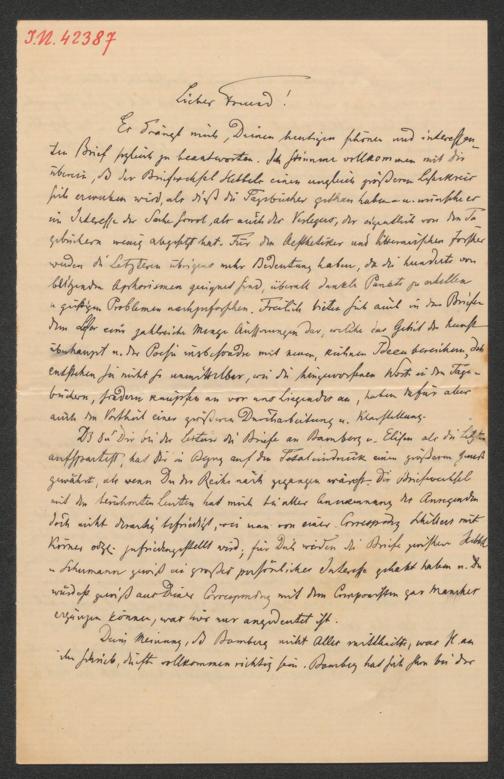 I.N. 42387
Lieber Freund!
Es drängt mich, Deinen heutigen schönen und interessan-
ten Brief sogleich zu beantworten. Ich stimme vollkommen mit dir
überein, dß der Briefwechsel Hebbels einen ungleich größeren Leserkreis
sich erwerben wird, als dieß die Tagebücher gethan haben u. wünsche es
im Interesse der Sache sowol, als auch des Verlegers, der eigentlich von den Ta-
gebüchern wenig abgesetzt hat. Für den Aesthetiker und literarischen Forscher
werden die Letzteren übrigens mehr Bedeutung haben, da die hunderte von
blitzenden Aphorismen geeignet sind, überall dunkle Punkte zu erhellen
u. geistigen Problemen nachzuforschen. Freilich bieten sich auch in den Briefen
dem Leser eine zahlreiche Menge Äußerungen dar, welche das Gebiet der Kunst
überhaupt u. der Poesie insbesondre mit neuen, kühnen Ideen bereichern, doch
entstehen sie nicht so unmittelbar, wie die hingeworfenen Worte in den Tage-
büchern, sondern knüpfen an vor uns Liegendes an, haben dafür aber
auch den Vortheil einer größeren Durcharbeitung u. Klarstellung.
Dß du Dir bei der Lektüre die Briefe an Bamberg u. Elisen als die Letzten
aufspartest, hat dir in Bezug auf den Totaleindruck einen größeren Genuß
gewährt, als wenn Du der Reihe nach gegangen wärest. Die Briefwechsel
mit den berühmten Leuten hat mich bei aller Anerkennung des Anregenden
doch nicht derartig befriedigt, wie man von einer Correspondenz Schillers mit
Körner zufriedengestellt wird; für Dich würden die Briefe zwischen Hebbel
u. Schumann gewiß ein großes persönliches Interesse gehabt haben u. Du
würdest gewiß aus Deiner Correspondenz mit dem Componisten gar Manches
ergänzen können, was hier nur angedeutet ist.
Deine Meinung, dß Bamberg nicht Alles mittheilte, was H. an
ihn schrieb, dürfte vollkommen richtig sein. Bamberg hat sich schon bei der